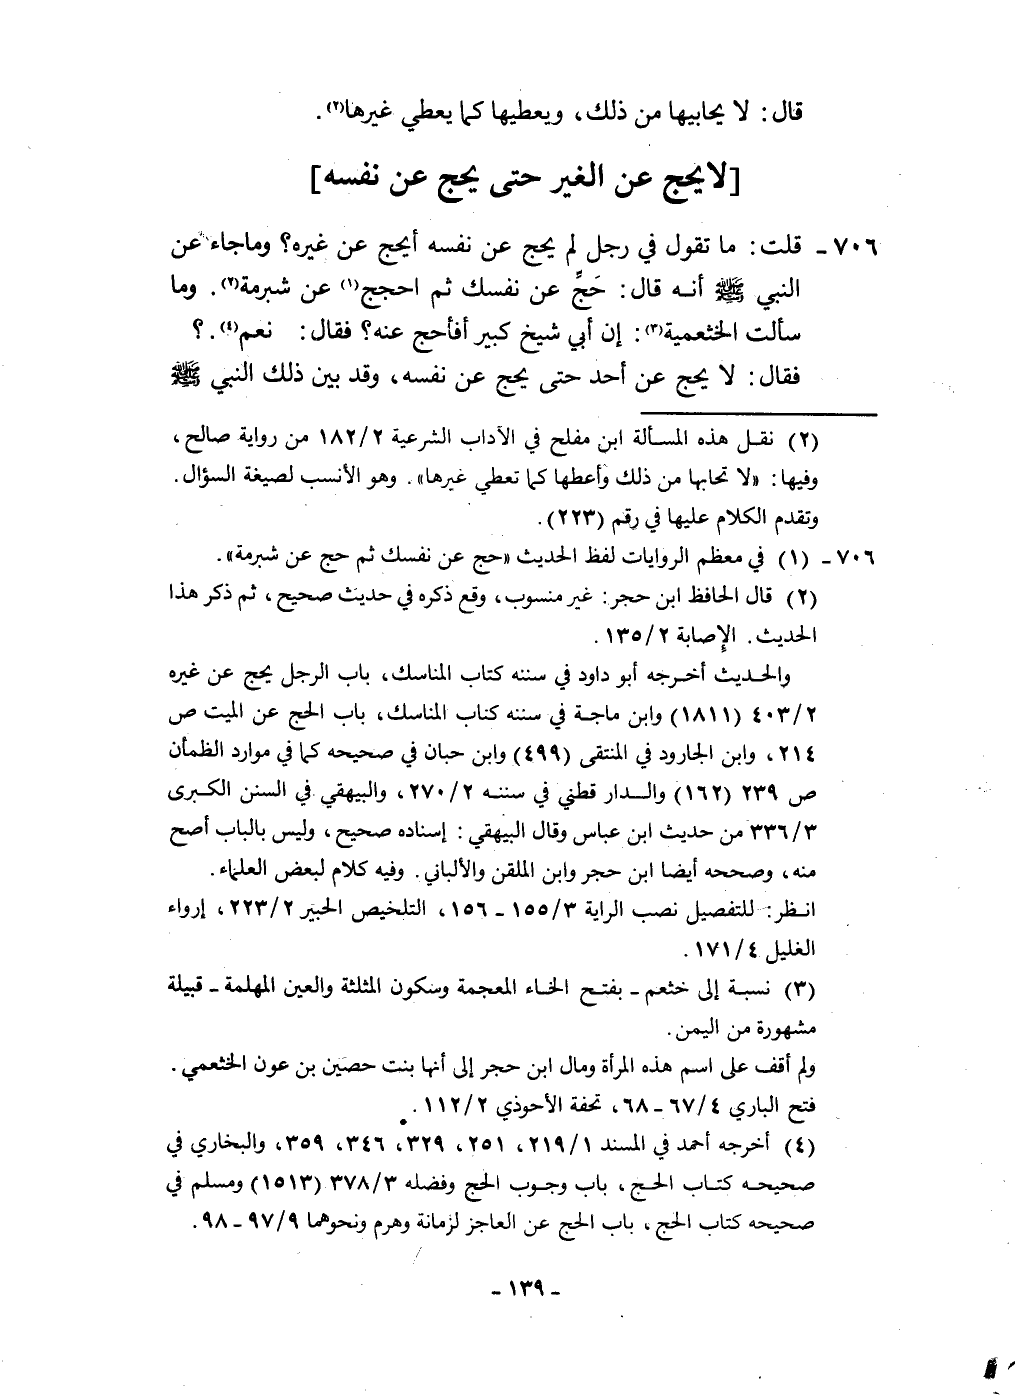 قال: لا يحابيها من ذلك، ويعطيها كما يعطي غيرها(٢).
[لا يحج عن الغير حتى يحج عن نفسه]
٧٠٦ - قلت: ما تقول في رجل لم يحج عن نفسه أيحج عن غيره؟ وماجاء عن
النبي ﷺ أنه قال: حَجِّ عن نفسك ثم احجج(١) عن شبرمة(٢). وما
سألت الخثعمية(٣): إن أبي شيخ كبير أفأحج عنه؟ فقال: نعم(٤).؟
فقال: لا يحج عن أحد حتى يحج عن نفسه، وقد بين ذلك النبي ﷺ
(٢) نقل هذه المسألة ابن مفلح في الآداب الشرعية ١٨٢/٢ من رواية صالح،
وفيها: «لا تحابها من ذلك وأعطها كما تعطي غيرها». وهو الأنسب لصيغة السؤال.
وتقدم الكلام عليها في رقم (٢٢٣).
٧٠٦ - (١) في معظم الروايات لفظ الحديث «حج عن نفسك ثم حج عن شبرمة».
(٢) قال الحافظ ابن حجر: غير منسوب، وقع ذكره في حديث صحيح، ثم ذكر هذا
الحديث. الإصابة ١٣٥/٢.
والحديث أخرجه أبو داود في سننه كتاب المناسك، باب الرجل يحج عن غيره
٤٠٣/٢ (١٨١١) وابن ماجة في سننه كتاب المناسك، باب الحج عن الميت ص
٢١٤، وابن الجارود في المنتقى (٤٩٩) وابن حبان في صحيحه كما في موارد الظمأن
ص ٢٣٩ (١٦٢) والدار قطني في سننه ٢٧٠/٢، والبيهقي في السنن الكبرى
٣٣٦/٣ من حديث ابن عباس وقال البيهقي: إسناده صحيح، وليس بالباب أصح
منه، وصححه أيضا ابن حجر وابن الملقن والألباني. وفيه كلام لبعض العلماء.
انظر: للتفصيل نصب الراية ١٥٥/٣ - ١٥٦، التلخيص الحبير ٢٢٣/٢، إرواء
الغليل ١٧١/٤.
(٣) نسبة إلى خثعم - بفتح الخاء المعجمة وسكون المثلثة والعين المهلمة - قبيلة
مشهورة من اليمن.
ولم أقف على اسم هذه المرأة ومال ابن حجر إلى أنها بنت حصين بن عون الخثعمي.
فتح الباري ٦٧/٤ - ٦٨، تحفة الأحوذي ١١٢/٢.
(٤) أخرجه أحمد في المسند ٢١٩/١، ٢٥١، ٣٢٩، ٣٤٦، ٣٥٩، والبخاري في
صحيحه كتاب الحج، باب وجوب الحج وفضله ٣٧٨/٣ (١٥١٣) ومسلم في
صحيحه كتاب الحج، باب الحج عن العاجز لزمانة وهرم ونحوهما ٩٧/٩ - ٩٨.
- ١٣٩ -